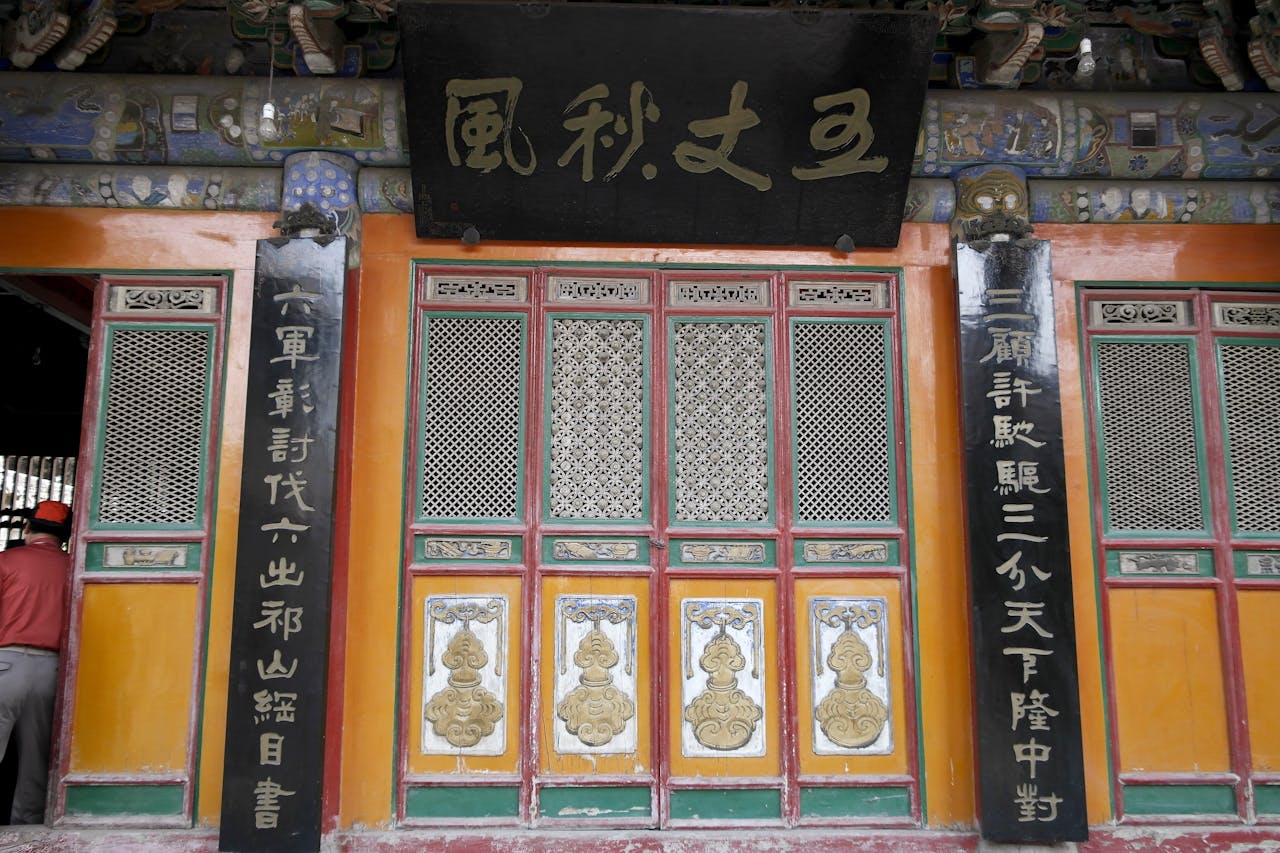 五丈秋風
三顧許馳驅三分天下隆中對
六軍彰討伐六出祁山綱目書